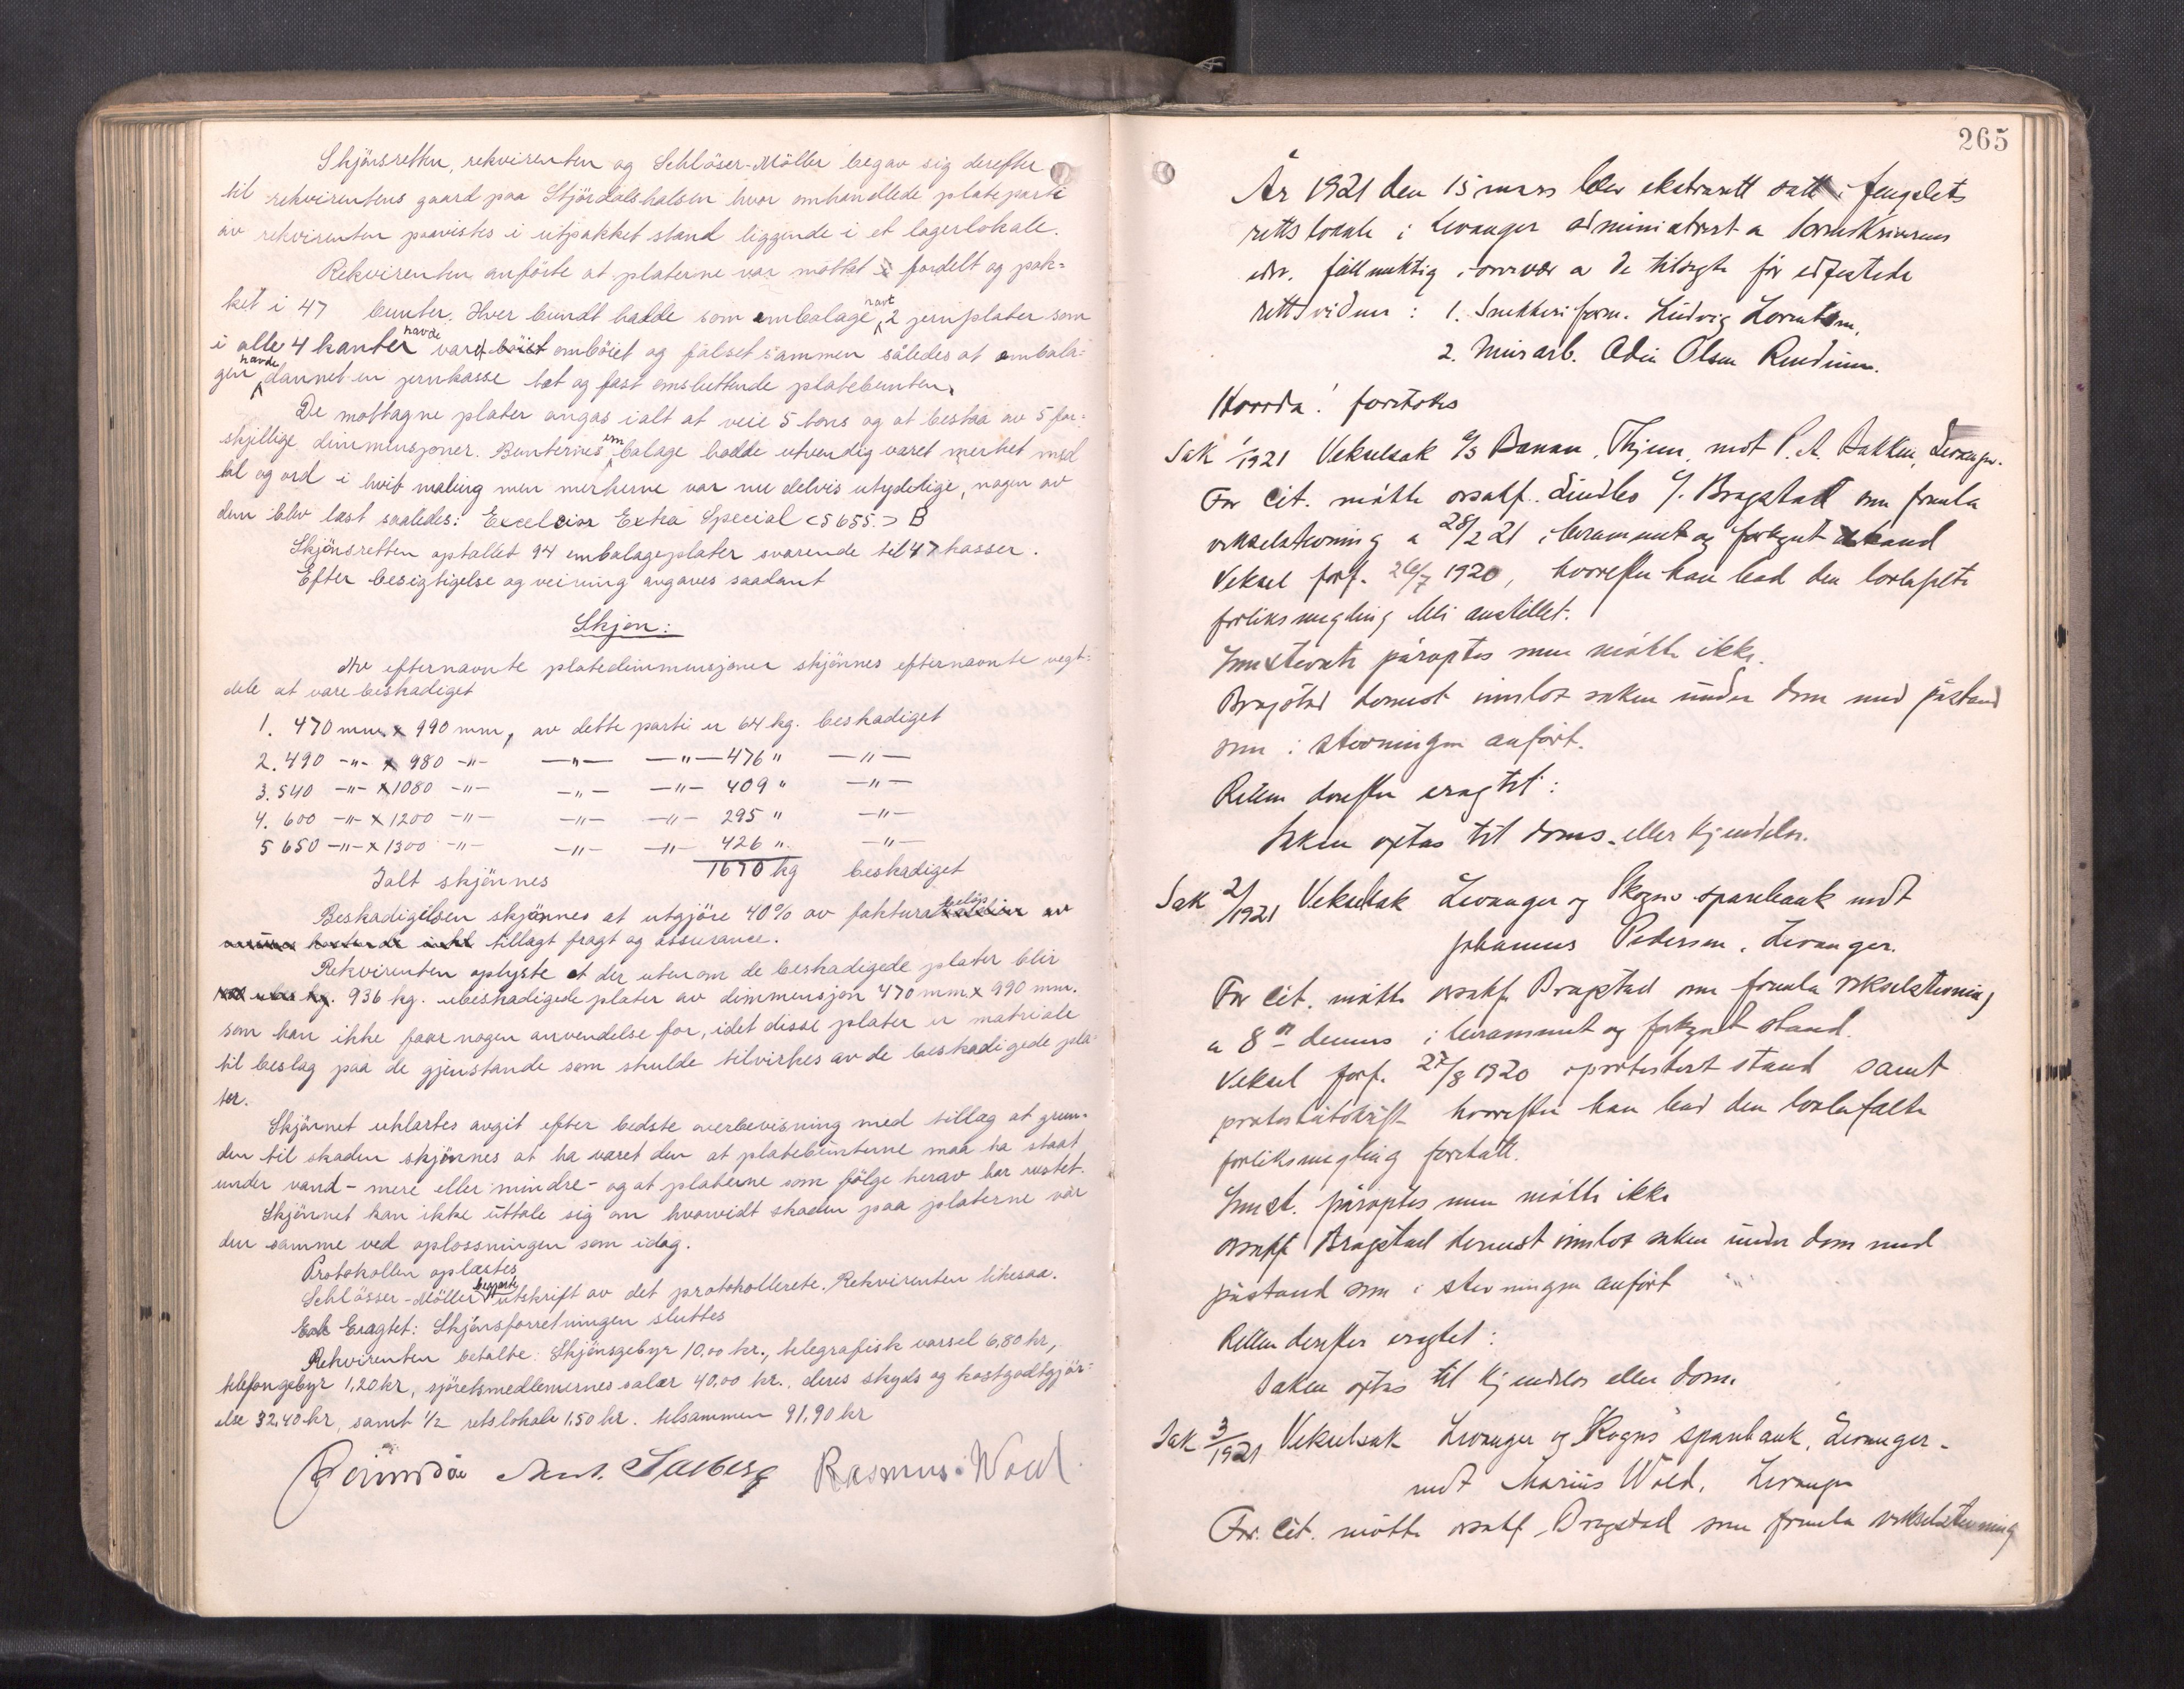 Skjönsretten, rekvirenten og Schlöser-Möller begav sig derefter
til rekvirentens gaard paa Stjördalshalsen hvor omhandlede plateparti
av rekvirenten paavistes i utpakket stand liggende i et lagerlokale.
Rekvirenten anförte at platerne var mottat fordelt og pak-
ket i 47 bunter. Hver bundt hadde som embalage havt 2 jernplater som
i alle 4 kanter havde vard böiet omböiet og falset sammen således at embala-
gen havde dannet en jernkasse tet og fast omsluttende platebunten.
De mottagne plater angas ialt at veie 5 tons og at bestaa av 5 for-
skjellige dimmensjoner. Bunternes embalage hadde utvendig varet merket med
tal og ord i hvit maling men merkerne var nu delvis utydelige, nogen av
dem blev læst saaledes: Excelsior Extra Special <5655> B
Skjönsretten optallet 94 embalageplater svarende til 47 kasser.
Efter besigtigelse og veining avgaves saadant
Skjön:
Av efternavnte platedimmensjoner skjönnes efternavnte vegt-
dele at være beskadiget
1. 470 mm x 990 mm, av dette parti er 64 kg. beskadiget
2. 490 -"- x 980 -"- -"- -"- 476 " -"-
3. 540 -"- x 1080 -"- -"- -"- 409 " -"-
4. 600 -"- x 1200 -"- -"- -"- 295 " -"-
5 650 -"- x 1300 -"- -"- -"- 426 " -"-
Ialt skjönnes 1670 kg beskadiget
Beskadigelsen skjönnes at utgjöre 40% av faktura beløp av
tillagt fragt og assurance.
Rekvirenten oplyste at der utenom de beskadigede plater blir
936 kg. ubeskadigede plater av dimmensjon 470 mm x 990 mm.
som han ikke faar nogen anvendelse for, idet disse plater er matriale
til beslag paa de gjenstande som skulde tilvirkes av de beskadigede pla-
ter.
Skjönnet erklærtes avgit efter bedste overbevisning med tillæg at grun-
den til skaden skjönnes at ha været den at platebunterne maa ha staat
under vand - mere eller mindre - og at platerne som fölge herav har rustet.
Skjönnet kan ikke uttale sig om hvorvidt skaden paa platerne var
den samme ved oplossningen som idag.
Protokollen oplæstes
Schlösser-Möller begjærte utskrift av det protokollerete. Rekvirenten likesaa.
Eragtet: Skjönsforretningen sluttes
Rekvirenten betalte: Skjönsgebyr 10,00 kr., telegrafisk varsel 6,80 kr,
telefongebyr 1,20 kr, sjöretsmedlemmernes salær 40,00 kr., deres skyds og kostgodtgjör-
else 32,40 kr, samt 1/2 retslokale 1,50 kr. tilsammen 91,90 kr
Solberg Rasmus Wold
265
År 1921 den 15 mars blev ekstrarett satt i fengslets
rettslokale i Levanger administrert av sorenskriverens
edsv. fullmektig i overvær av de tilsagte før edfestede
rettsvidner: 1. Snekkeriform. Ludvig Lorentsen,
2. Murarb. Odin Olsen
Hvorda! foretokes
Sak 1/1921 Vekselsak A/S Banan, Thjem, mot P. A. Bakken, Levanger.
For cit. møtte orsakf. Lindbo v/ Bragstad som fremla
vekselstevning av 28/2 21 i berammet og forkynt stand
Veksel forf. 26/7 1920, hvorefter han bad den lovbefalte
forliksmegling bli anstillet.
Innstevnte påroptes men møtte ikke.
Bragstad dernest innlot saken under dom med påstand
som i stevningen anført.
Retten derefter eragtet:
Saken optas til doms- eller kjendelse.
Sak 2/1921 Vekselsak Levanger og Skogns sparebank mot
Johannes Pedersen, Levanger.
For cit. møtte orsakf. Bragstad som fremla vekselstevning
av 8de dennes i berammet og forkynt stand.
Veksel forf. 27/8 1920 i protestert stand samt
protestutskrift hvorefter han bad den lovbefalte
forliksmegling foretatt.
Innst. påroptes men møtte ikke
orsakf Bragstad dernest innlot saken under dom med
påstand som i stevningen anført
Retten derefter eragtet:
Saken optas til kjendelse eller dom.
Sak 3/1921 Vekselsak Levanger og Skogns sparebank, Levanger-
mot Marius Wold, Levanger
For. cit. møtte orsakf. Bragstad som fremla vekselstevning